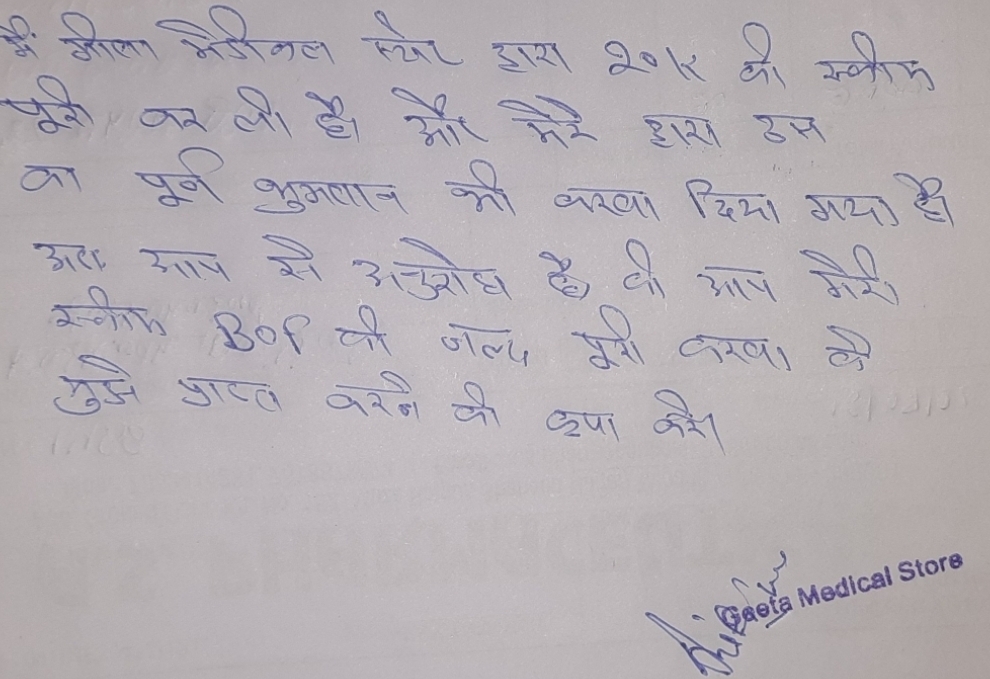 मैं गीता मैडीकल स्टोर द्वारा २०१५ की स्कीम
पूरी कर ली है। और मेरे द्वारा उस
का पूर्ण भुगतान भी करवा दिया गया है।
अतः आप से अनुरोध है की आप मेरी
स्कीम Bof को जल्द पूरी करवा के
मुझे प्राप्त करने की कृपा करें।
Geeta Medical Store